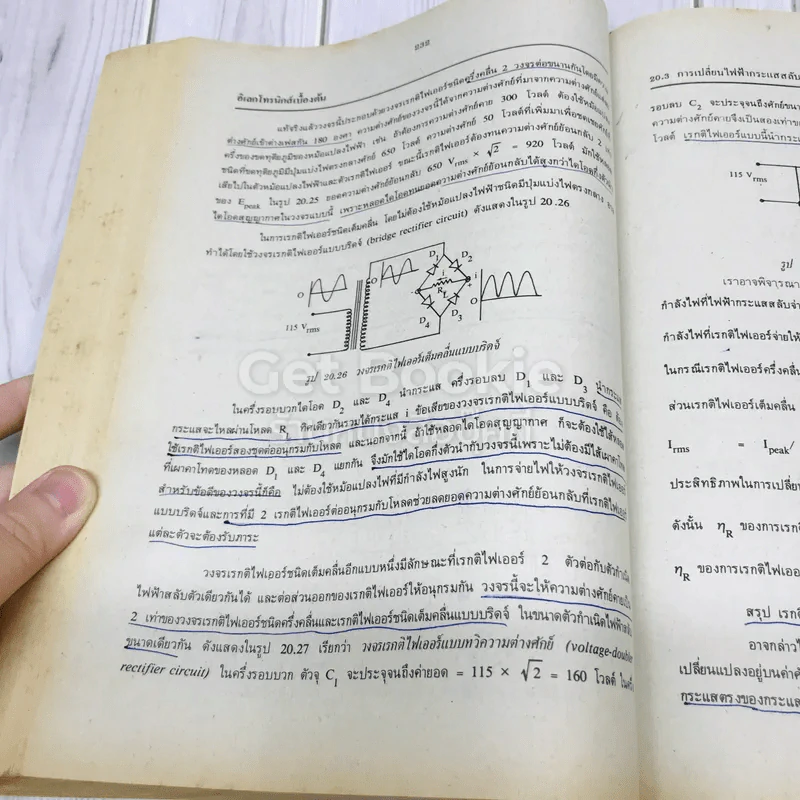 232
อิเลกโทรนิกส์เบื้องต้น
แท้จริงแล้ววงจรนี้ประกอบด้วยวงจรเรกติไฟเออร์ชนิดครึ่งคลื่น 2 วงจรต่อขนานกันโดยมีความ
ต่างศักย์เข้าต่างเฟสกัน 180 องศา ความต่างศักย์ของวงจรนี้ได้จากความต่างศักย์ที่มาจากความต่างศักย์
ครึ่งของขดทุติยภูมิของหม้อแปลงไฟฟ้า เช่น ถ้าต้องการความต่างศักย์คาย 300 โวลต์ ต้องใช้หม้อแปลง
ชนิดที่ขดทุติยภูมิมีปุ่มแบ่งไฟตรงกลางศักย์ 650 โวลต์ ความต่างศักย์ 50 โวลต์ที่เพิ่มมาเพื่อชดเชย
เสียไปในตัวหม้อแปลงไฟฟ้าและตัวเรกติไฟเออร์ ขณะนี้เรกติไฟเออร์ต้องทนความต่างศักย์ย้อนกลับ 2 เท่า
ของ E peak ในรูป 20.25 ยอดความต่างศักย์ย้อนกลับ 650 V rms × √2 = 920 โวลต์ มักใช้
ไดโอดสุญญากาศในวงจรแบบนี้ เพราะหลอดไดโอดทนยอดความต่างศักย์ย้อนกลับได้สูงกว่าไดโอด
ในการเรกติไฟเออร์ชนิดเต็มคลื่น โดยไม่ต้องใช้หม้อแปลงไฟฟ้าชนิดมีปุ่มแบ่งไฟตรงกลาง
ทำได้โดยใช้วงจรเรกติไฟเออร์แบบบริดจ์ (bridge rectifier circuit) ดังแสดงในรูป 20.26
O
115 V rms
O
D1
D2
i
RL
i
+
D4
D3
O
รูป 20.26 วงจรเรกติไฟเออร์เต็มคลื่นแบบบริดจ์
Get Bookie
ในครึ่งรอบบวกไดโอด D2 และ D4 นำกระแส ครึ่งรอบลบ D1 และ D3 นำกระแส
กระแสจะไหลผ่านโหลด RL ทิศเดียวกันรวมได้กระแส i ข้อเสียของวงจรเรกติไฟเออร์แบบบริดจ์ คือ ต้อง
ใช้เรกติไฟเออร์สองชุดต่ออนุกรมกับโหลด และนอกจากนี้ ถ้าใช้หลอดไดโอดสุญญากาศ ก็จะต้องใช้ไส้หลอด
ที่เผาคาโทดของหลอด D1 และ D4 แยกกัน จึงมักใช้ไดโอดกึ่งตัวนำกับวงจรนี้เพราะไม่ต้องมีไส้เผาคาโทด
สำหรับข้อดีของวงจรนี้ก็คือ ไม่ต้องใช้หม้อแปลงไฟที่มีกำลังไฟสูงนัก ในการจ่ายไฟให้วงจรเรกติไฟเออร์
แบบบริดจ์และการที่มี 2 เรกติไฟเออร์ต่ออนุกรมกับโหลดช่วยลดยอดความต่างศักย์ย้อนกลับที่เรกติไฟเออร์
แต่ละตัวจะต้องรับภาระ
วงจรเรกติไฟเออร์ชนิดเต็มคลื่นอีกแบบหนึ่งมีลักษณะที่เรกติไฟเออร์ 2 ตัวต่อกับตัวกำเนิด
ไฟฟ้าสลับตัวเดียวกันได้ และต่อส่วนออกของเรกติไฟเออร์ให้อนุกรมกัน วงจรนี้จะให้ความต่างศักย์คายเป็น
2 เท่าของวงจรเรกติไฟเออร์ชนิดครึ่งคลื่นและเรกติไฟเออร์ชนิดเต็มคลื่นแบบบริดจ์ ในขนาดตัวกำเนิดไฟฟ้าสลับ
ขนาดเดียวกัน ดังแสดงในรูป 20.27 เรียกว่า วงจรเรกติไฟเออร์แบบทวิความต่างศักย์ (voltage-doubler
rectifier circuit) ในครึ่งรอบบวก ตัวจุ C1 จะประจุจนถึงค่ายอด = 115 × √2 = 160 โวลต์ ในครึ่ง
20.3 การเปลี่ยนไฟฟ้ากระแสสลับ
รอบลบ C2 จะประจุจนถึงศักย์ขนา
ความต่างศักย์คายจึงเป็นสองเท่าขอ
โวลต์ เรกติไฟเออร์แบบนี้นำกระ
115 V rms
รูป
เราอาจพิจารณา
กำลังไฟที่ไฟฟ้ากระแสสลับจ่า
กำลังไฟที่เรกติไฟเออร์จ่ายให้
ในกรณีเรกติไฟเออร์ครึ่งคลื่น
ส่วนเรกติไฟเออร์เต็มคลื่น
I rms = I peak/
ประสิทธิภาพในการเปลี่ยน
ดังนั้น ηR ของการเรกติ
ηR ของการเรกติไฟเออ
สรุป เรกติ
อาจกล่าวไ
เปลี่ยนแปลงอยู่บนค่าศั
กระแสตรงของกระแส